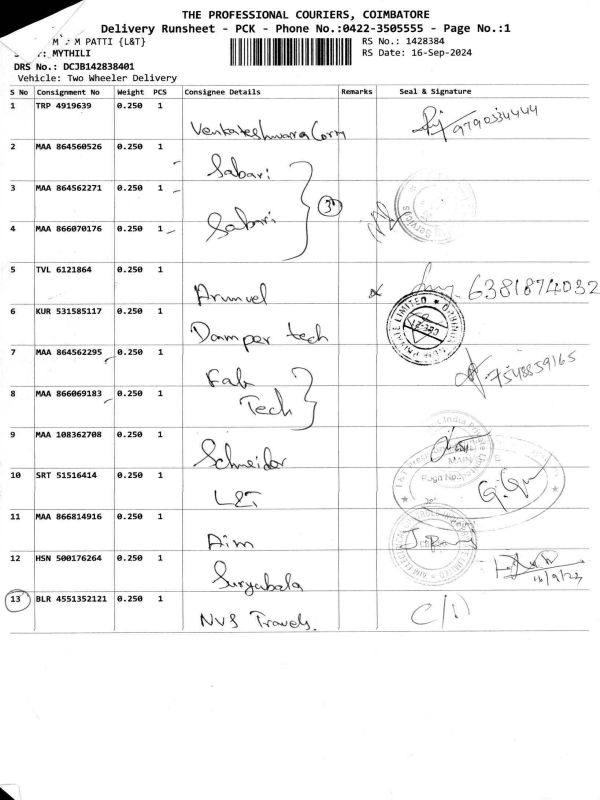 THE PROFESSIONAL COURIERS, COIMBATORE
Delivery Runsheet - PCK - Phone No.:0422-3505555 - Page No.:1
PATTI {L&T}
RS No.: 1428384
MYTHILI
RS Date: 16-Sep-2024
DRS No.: DCJB142838401
Vehicle: Two Wheeler Delivery
S No Consignment No Weight PCS Consignee Details Remarks Seal & Signature
1 TRP 4919639 0.250 1
9790334444
2 MAA 864560526 0.250 1
Sabari
3 MAA 864562271 0.250 1
3
4 MAA 866070176 0.250 1
Sabari
5 TVL 6121864 0.250 1
Arumvel
6381874032
6 KUR 531585117 0.250 1
Damper tech
7 MAA 864562295 0.250 1
Fab
7548859165
8 MAA 866069183 0.250 1
Tech
9 MAA 108362708 0.250 1
Schneider
10 SRT 51516414 0.250 1
L&T
11 MAA 866814916 0.250 1
Aim
12 HSN 500176264 0.250 1
Suryabala
16/9/23
13 BLR 4551352121 0.250 1
NVS Travels.